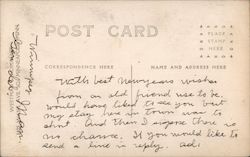 POST CARD
PLACE
STAMP
HERE
CORRESPONDENCE HERE
NAME AND ADDRESS HERE
With best Newyears wishes
from an old friend use to be.
would have liked to see you but
my stay here in town was to
short. And then I supose there is
no chance. If you would like to
send a line in reply, ad.